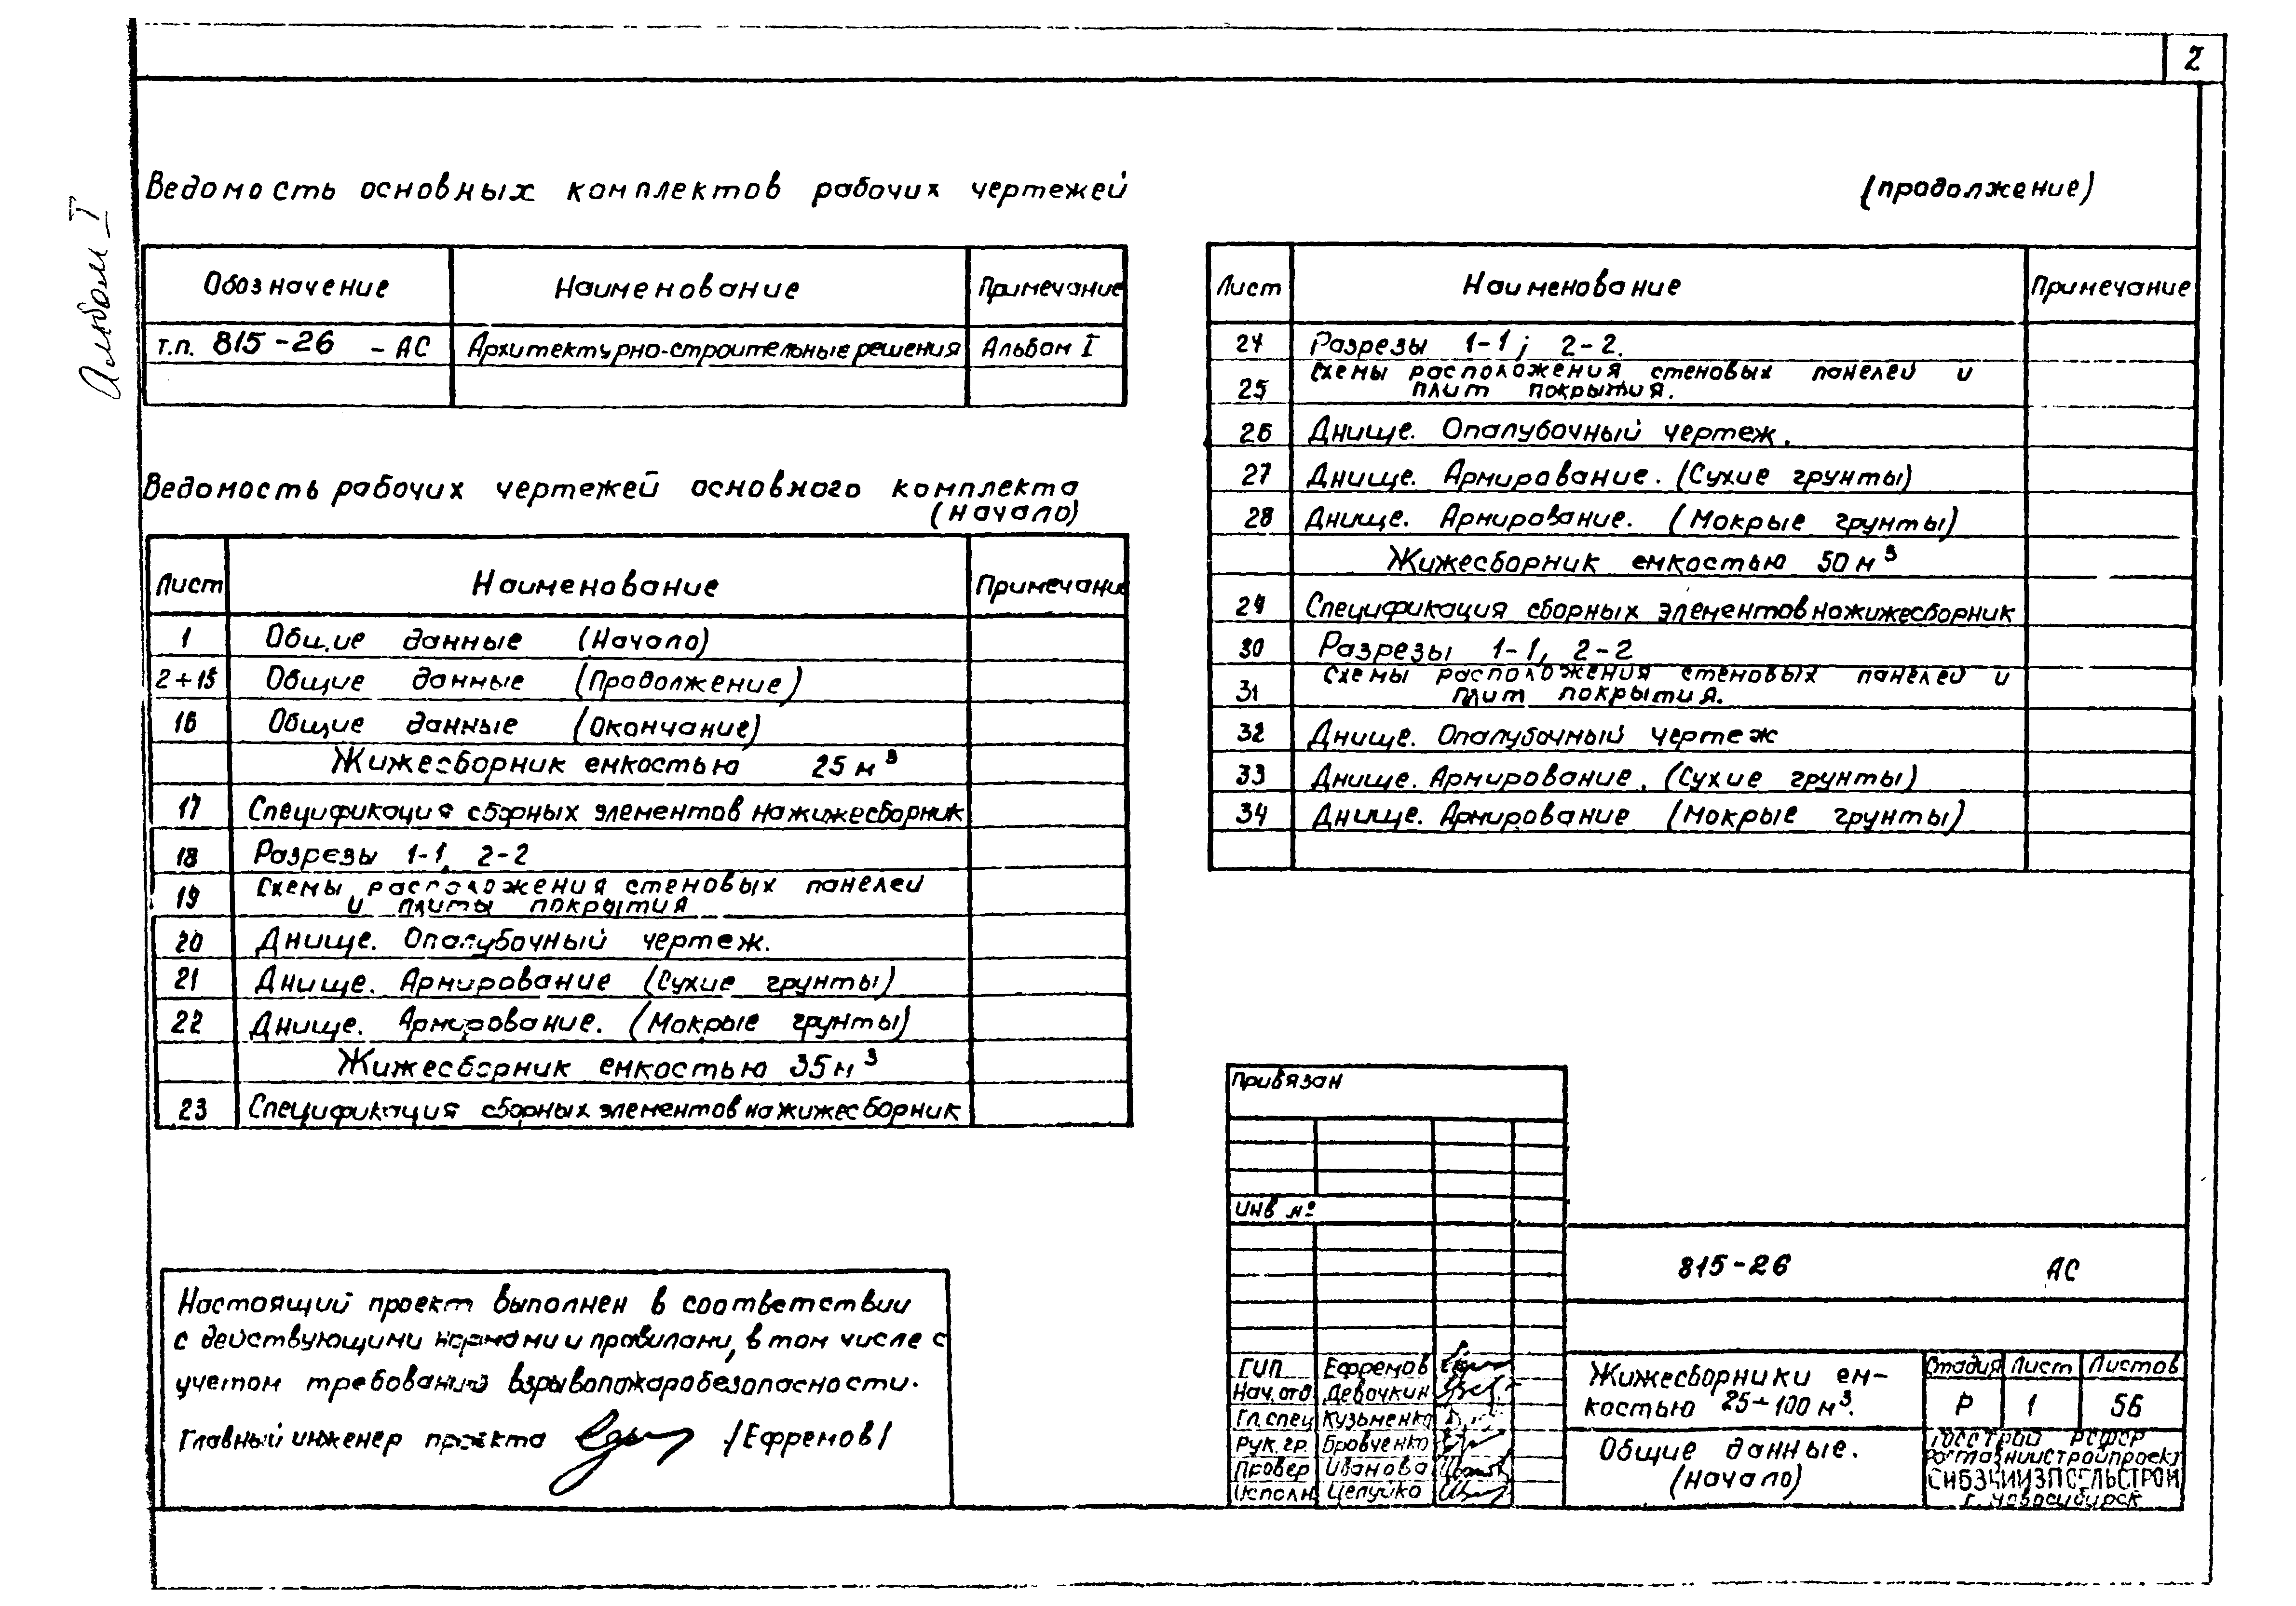 2
Альбом I
Ведомость основных комплектов рабочих чертежей
Обозначение Наименование Примечание
т.п. 815-26 - АС Архитектурно-строительные решения Альбом I
Ведомость рабочих чертежей основного комплекта
(начало)
Лист Наименование Примечание
1 Общие данные (Начало)
2÷15 Общие данные (Продолжение)
16 Общие данные (Окончание)
Жижесборник емкостью 25 м³
17 Спецификация сборных элементов на жижесборник
18 Разрезы 1-1, 2-2
19 Схемы расположения стеновых панелей
и плиты покрытия
20 Днище. Опалубочный чертеж.
21 Днище. Армирование (Сухие грунты)
22 Днище. Армирование. (Мокрые грунты)
Жижесборник емкостью 35 м³
23 Спецификация сборных элементов на жижесборник
(продолжение)
Лист Наименование Примечание
24 Разрезы 1-1; 2-2.
25 Схемы расположения стеновых панелей и
плит покрытия.
26 Днище. Опалубочный чертеж.
27 Днище. Армирование. (Сухие грунты)
28 Днище. Армирование. (Мокрые грунты)
Жижесборник емкостью 50 м³
29 Спецификация сборных элементов на жижесборник
30 Разрезы 1-1, 2-2
31 Схемы расположения стеновых панелей и
плит покрытия.
32 Днище. Опалубочный чертеж
33 Днище. Армирование. (Сухие грунты)
34 Днище. Армирование (Мокрые грунты)
Настоящий проект выполнен в соответствии
с действующими нормами и правилами, в том числе с
учетом требований взрывопожаробезопасности.
Главный инженер проекта /Ефремов/
Привязан
Инв №
815-26 АС
ГИП Ефремов
Нач. отд Девочкин
Гл. спец Кузьменко
Рук. гр. Бровченко
Провер Иванова
Исполн. Целуйко
Жижесборники ем-
костью 25÷100 м³.
Общие данные.
(начало)
Стадия Лист Листов
Р 1 56
Госстрой РСФСР
Росглавниистройпроект
СИБЗНИИЭПСЕЛЬСТРОЙ
г. Новосибирск